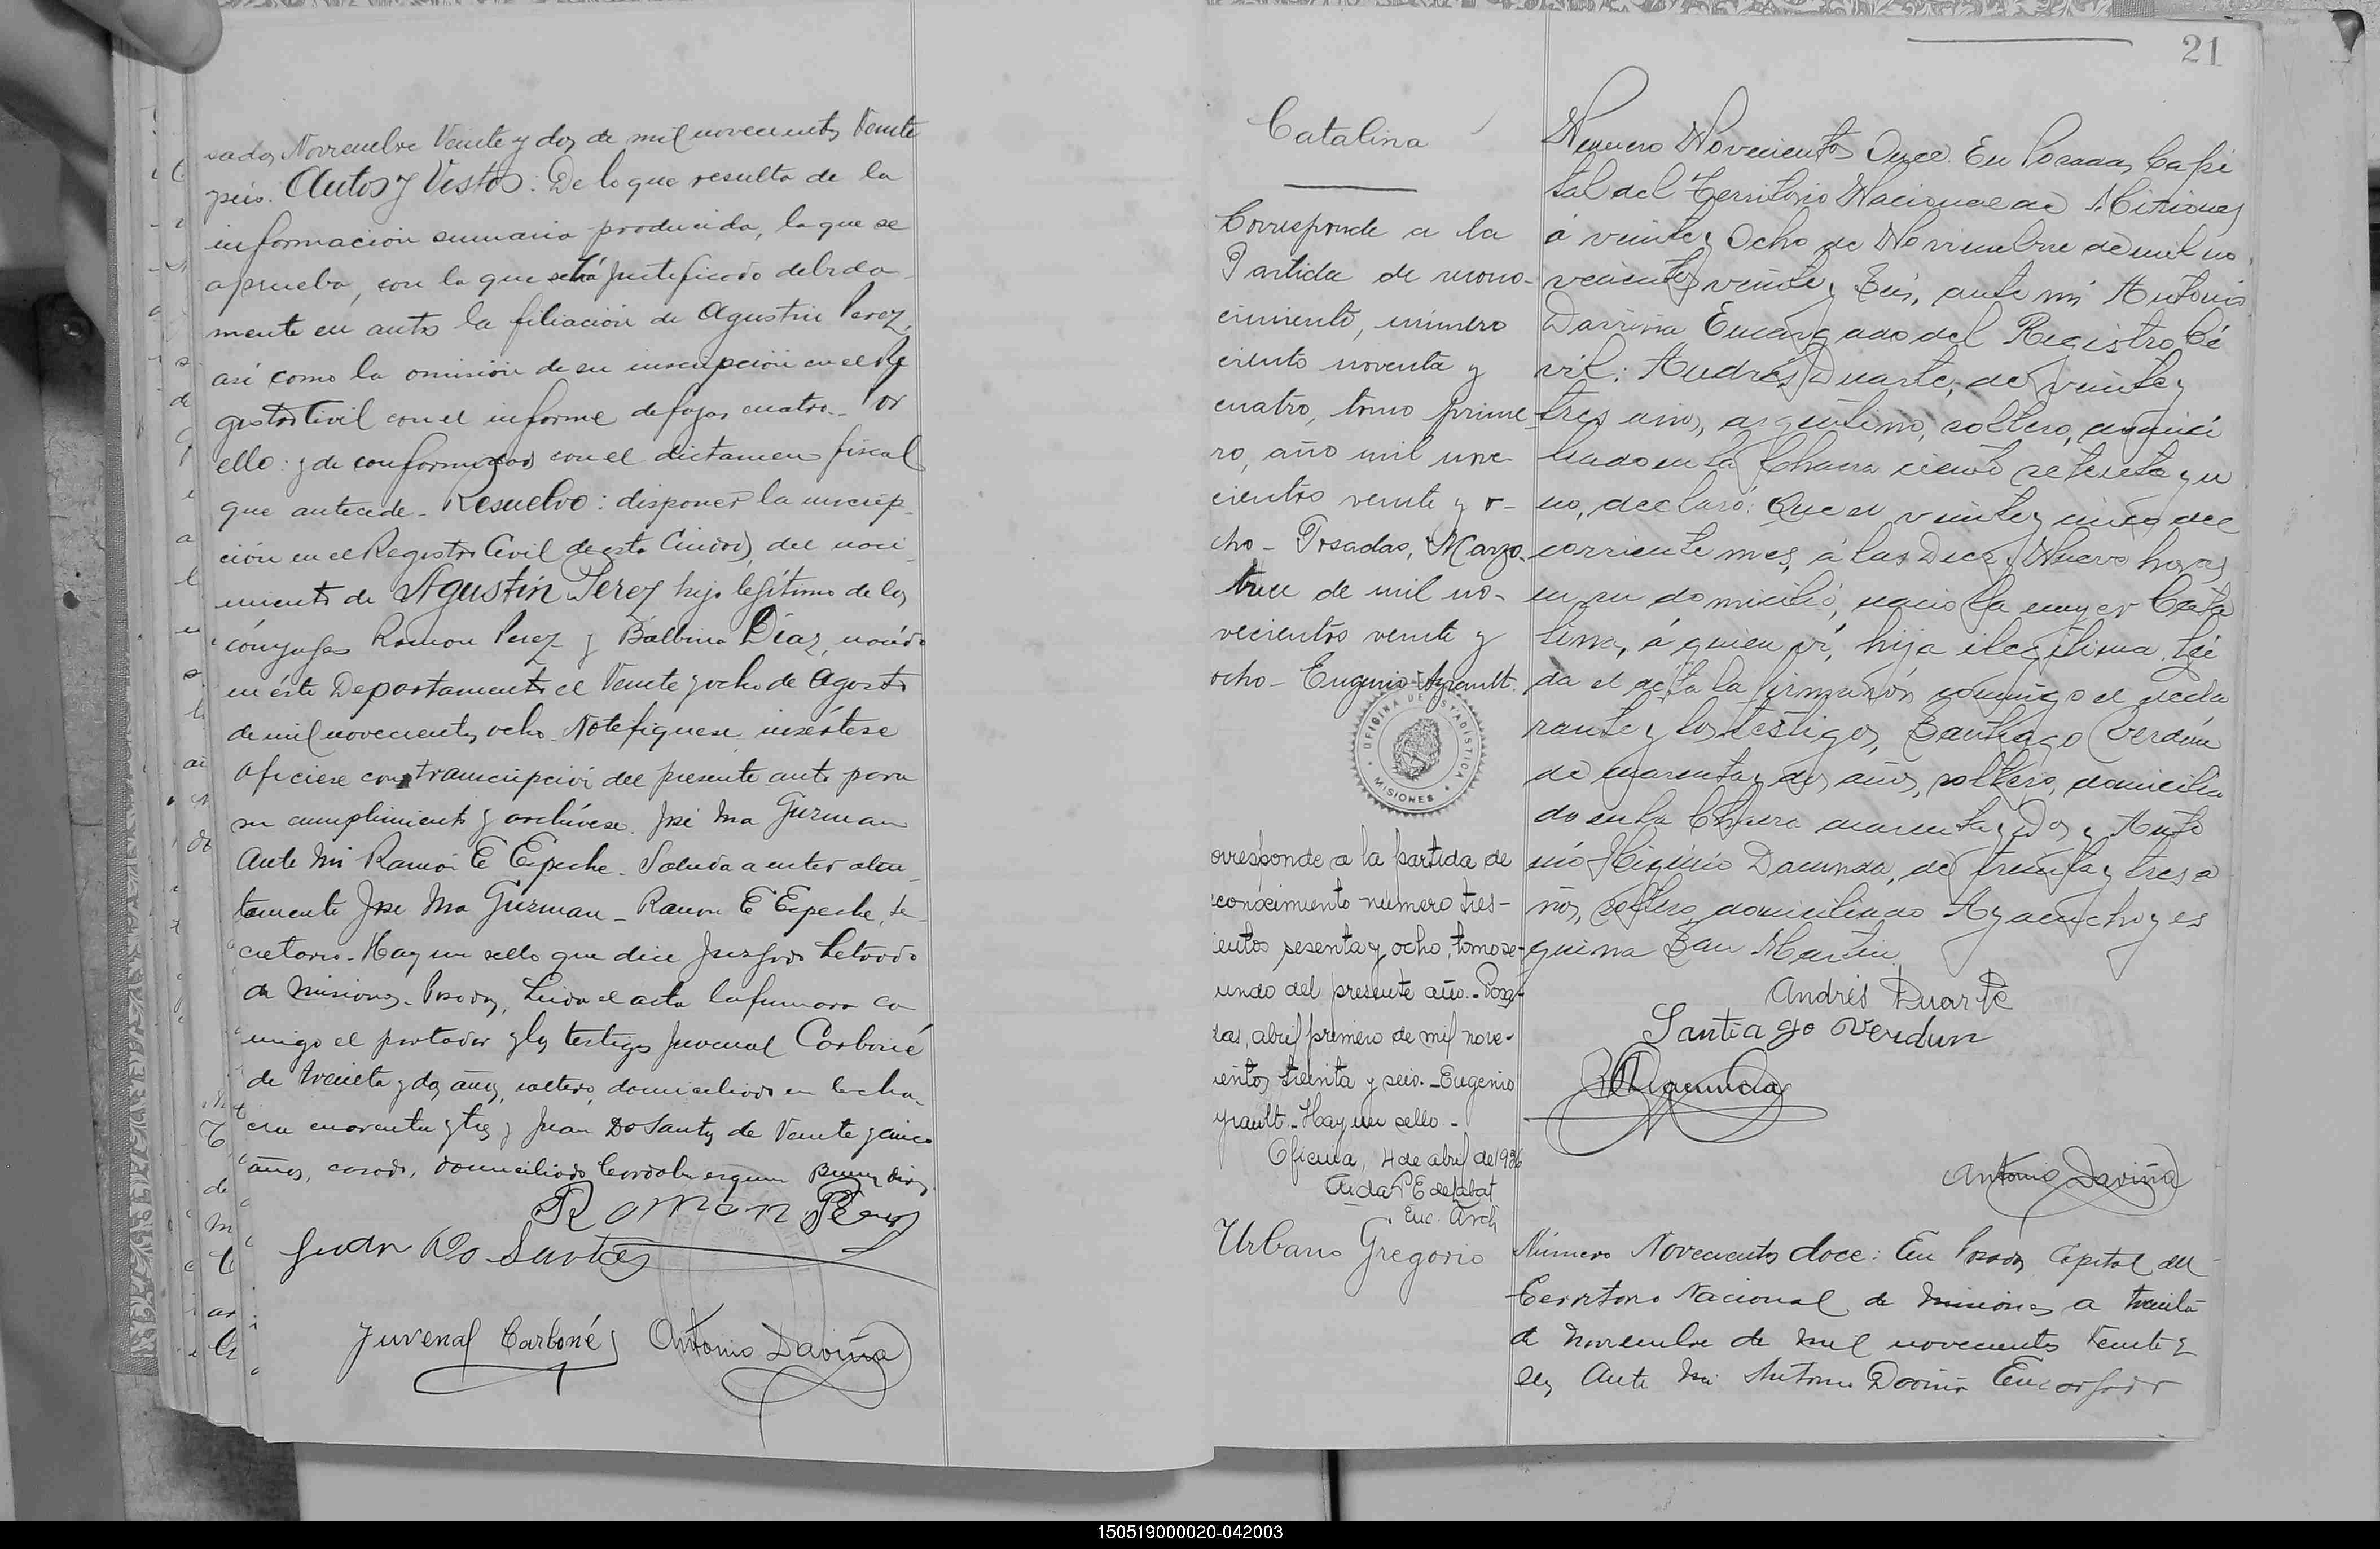 sadas, Noviembre Veinte y dos de mil novecientos Veinte
y seis. Autos y Vistos: De lo que resulta de la
información sumaria producida, la que se
aprueba, con la que está justificado debida-
mente en autos la filiación de Agustin Perez,
asi como la omisión de su inscripción en el Re
gistro Civil con el informe de fojas cuatro.- Por
ello: y de conformidad con el dictamen fiscal
que antecede - Resuelvo: disponer la inscrip-
ción en el Registro Civil de esta Ciudad, del naci-
miento de Agustin Perez hijo legítimo de los
cónyuges Ramon Perez y Balbina Diaz, nacido
en éste Departamento el Veinte y ocho de Agosto
de mil novecientos ocho. Notefiquese insértese
oficiese con transcripción del presente auto para
su cumplimiento y archívese. José Ma Guzman
Ante Mi Ramón E Espeche. Saluda a usted aten-
tamente José Ma Guzman - Ramon E Espeche, Se-
cretario. Hay un sello que dice Juzgado Letrado
de Misiones - Posadas, Leida el acta la firmaron co
migo el portador y los testigos Juvenal Carboné
de treinta y dos años, soltero, domiciliado en la cha-
cra cuarenta y tres y Juan Do Santos de Veinte y cinco
años, casado, domiciliado Cordoba esquina Buenos Aires.
Ramon Perez
Juan Do Santos
Juvenal Carboné
Antonio Daviña
21
Catalina
Corresponde a la
Partida de recono-
cimiento, número
ciento noventa y
cuatro, tomo prime-
ro, año mil nove-
cientos veinte y o-
cho - Posadas, Marzo
trece de mil no-
vecientos veinte y
ocho - Eugenio Ayrault.
OFICINA DE ESTADISTICA
MISIONES
orresponde a la partida de
econocimiento número tres-
ientos sesenta y ocho, tomo se-
undo del presente año. - Posa-
das, abril primero de mil nove-
ientos treinta y seis. - Eugenio
yrault. - Hay un sello. -
Oficina, 4 de abril de 1936
Enc. Arch
Numero Novecientos Once. En Posadas, Capi
tal del Territorio Nacional de Misiones
á veinte y Ocho de Noviembre de mil no
vecientos veinte y Seis, ante mi Antonio
Daviña Encargado del Registro Ci
vil: Andrés Duarte, de veinte y
tres años, argentino, soltero, domici
liado en la Chacra ciento setenta y u
no, declaró: Que el veinte y cinco del
corriente mes, á las Diez y Nueve horas
en su domicilio, nacio la mujer Cata
lina, á quien vi, hija ilegitima. Léi
da el acta la firmaron conmigo el decla
rante y los testigos, Santiago Verdún
de cuarenta y dos años, soltero, domicilia
do en la Chacra cuarenta y Dos y Anto
nio Higinio Dacunda, de treinta y tres a
ños, soltero domiciliado Ayacucho y es
quina San Martin.
Andrés Duarte
Santiago Verdun
Antonio Daviña
Urbano Gregorio
Número Novecientos doce: En Posadas Capital del
Territorio Nacional de Misiones a treinta
de Noviembre de mil novecientos Veinte y
seis Ante Mi Antonio Daviña Encargado
150519000020-042003